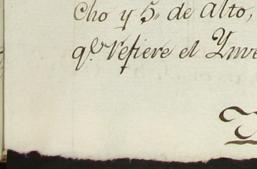 cho y 5„ de alto,
qe. refiere el Ynve